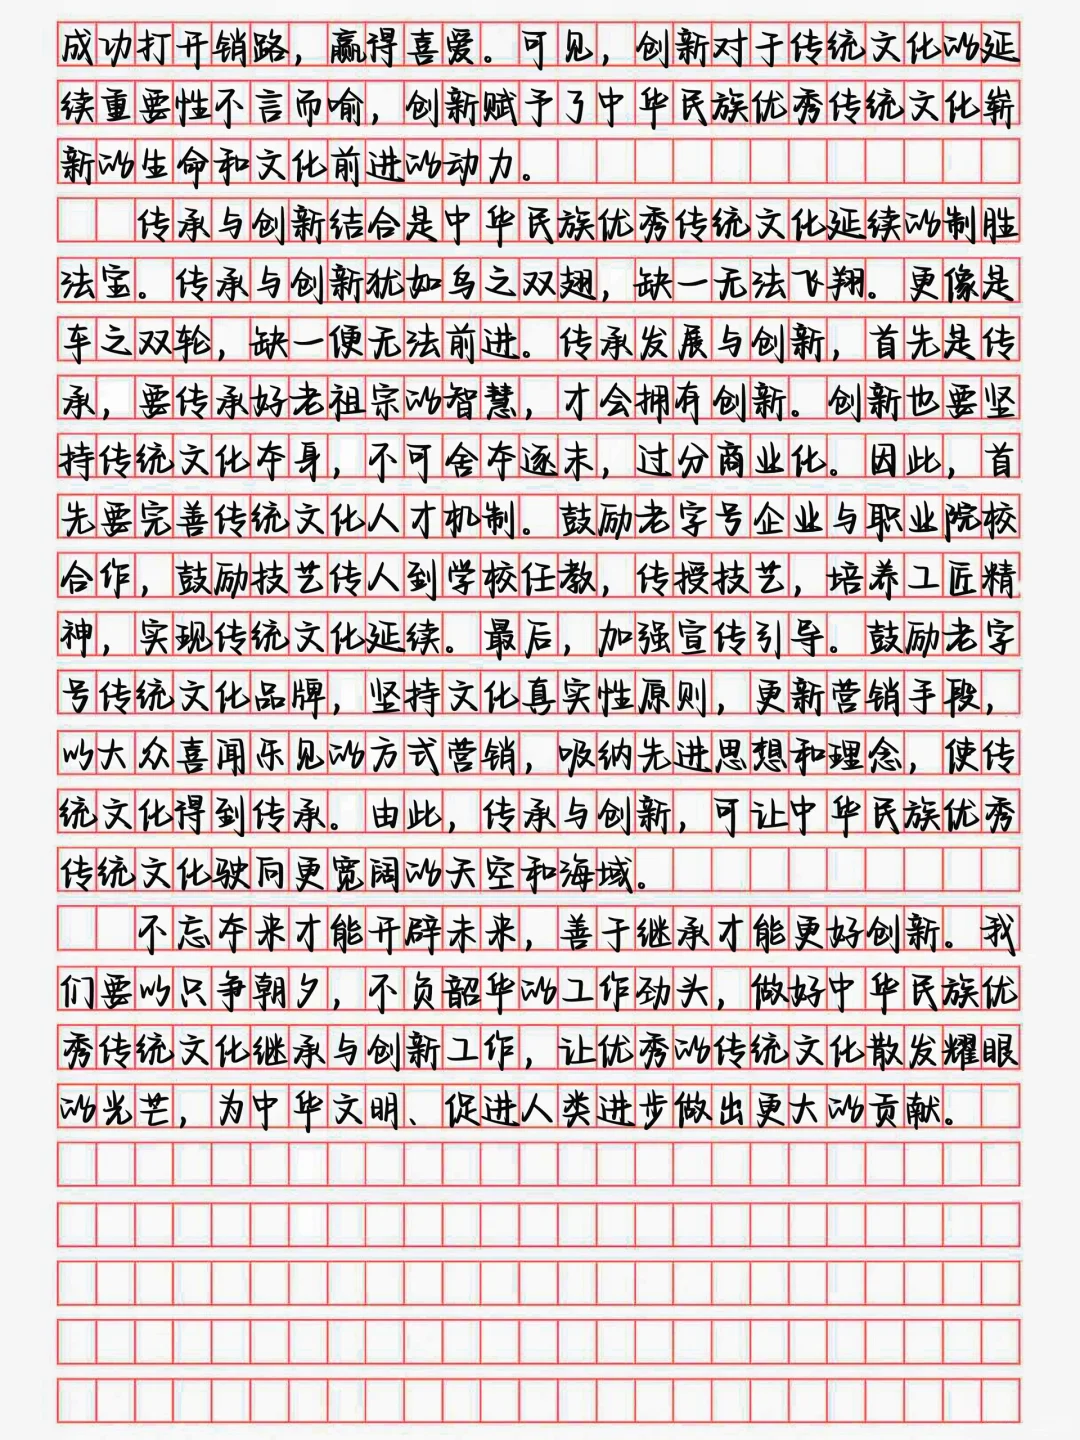 成功打开销路，赢得喜爱。可见，创新对于传统文化的延
续重要性不言而喻，创新赋予了中华民族优秀传统文化崭
新的生命和文化前进的动力。
传承与创新结合是中华民族优秀传统文化延续的制胜
法宝。传承与创新犹如鸟之双翅，缺一无法飞翔。更像是
车之双轮，缺一便无法前进。传承发展与创新，首先是传
承，要传承好老祖宗的智慧，才会拥有创新。创新也要坚
持传统文化本身，不可舍本逐末，过分商业化。因此，首
先要完善传统文化人才机制。鼓励老字号企业与职业院校
合作，鼓励技艺传人到学校任教，传授技艺，培养工匠精
神，实现传统文化延续。最后，加强宣传引导。鼓励老字
号传统文化品牌，坚持文化真实性原则，更新营销手段，
以大众喜闻乐见的方式营销，吸纳先进思想和理念，使传
统文化得到传承。由此，传承与创新，可让中华民族优秀
传统文化驶向更宽阔的天空和海域。
不忘本来才能开辟未来，善于继承才能更好创新。我
们要以只争朝夕，不负韶华的工作劲头，做好中华民族优
秀传统文化继承与创新工作，让优秀的传统文化散发耀眼
的光芒，为中华文明、促进人类进步做出更大的贡献。